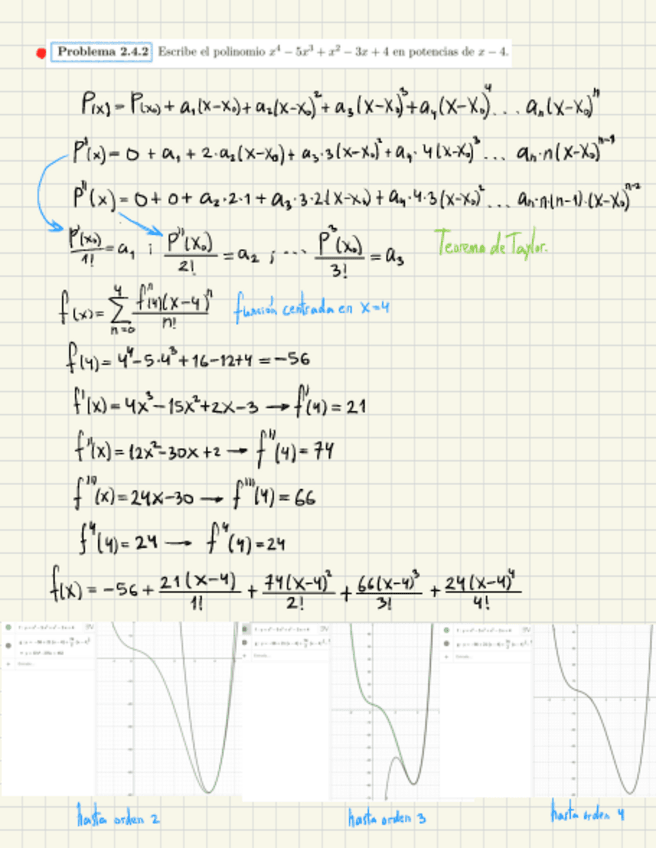 Problema 2.4.2 Escribe el polinomio x⁴ − 5x³ + x² − 3x + 4 en potencias de x − 4.
P(x) = P(x₀) + a₁(x-x₀) + a₂(x-x₀)² + a₃(x-x₀)³ + a₄(x-x₀)⁴ ... aₙ(x-x₀)ⁿ
P'(x) = 0 + a₁ + 2·a₂(x-x₀) + a₃·3(x-x₀)² + a₄·4(x-x₀)³ ... aₙ·n(x-x₀)ⁿ⁻¹
P''(x) = 0 + 0 + a₂·2·1 + a₃·3·2(x-x₀) + a₄·4·3(x-x₀)² ... aₙ·n(n-1)·(x-x₀)ⁿ⁻²
P'(x₀)/1! = a₁ ; P''(x₀)/2! = a₂ ; ... P³(x₀)/3! = a₃ Teorema de Taylor.
f(x) = Σ⁴ₙ₌₀ fⁿ(4)(x-4)ⁿ/n! función centrada en x=4
f(4) = 4⁴ - 5·4³ + 16 - 12 + 4 = -56
f'(x) = 4x³ - 15x² + 2x - 3 → f'(4) = 21
f''(x) = 12x² - 30x + 2 → f''(4) = 74
f'''(x) = 24x - 30 → f'''(4) = 66
f⁴(4) = 24 → f⁴(4) = 24
f(x) = -56 + 21(x-4)/1! + 74(x-4)²/2! + 66(x-4)³/3! + 24(x-4)⁴/4!
hasta orden 2
hasta orden 3
hasta orden 4